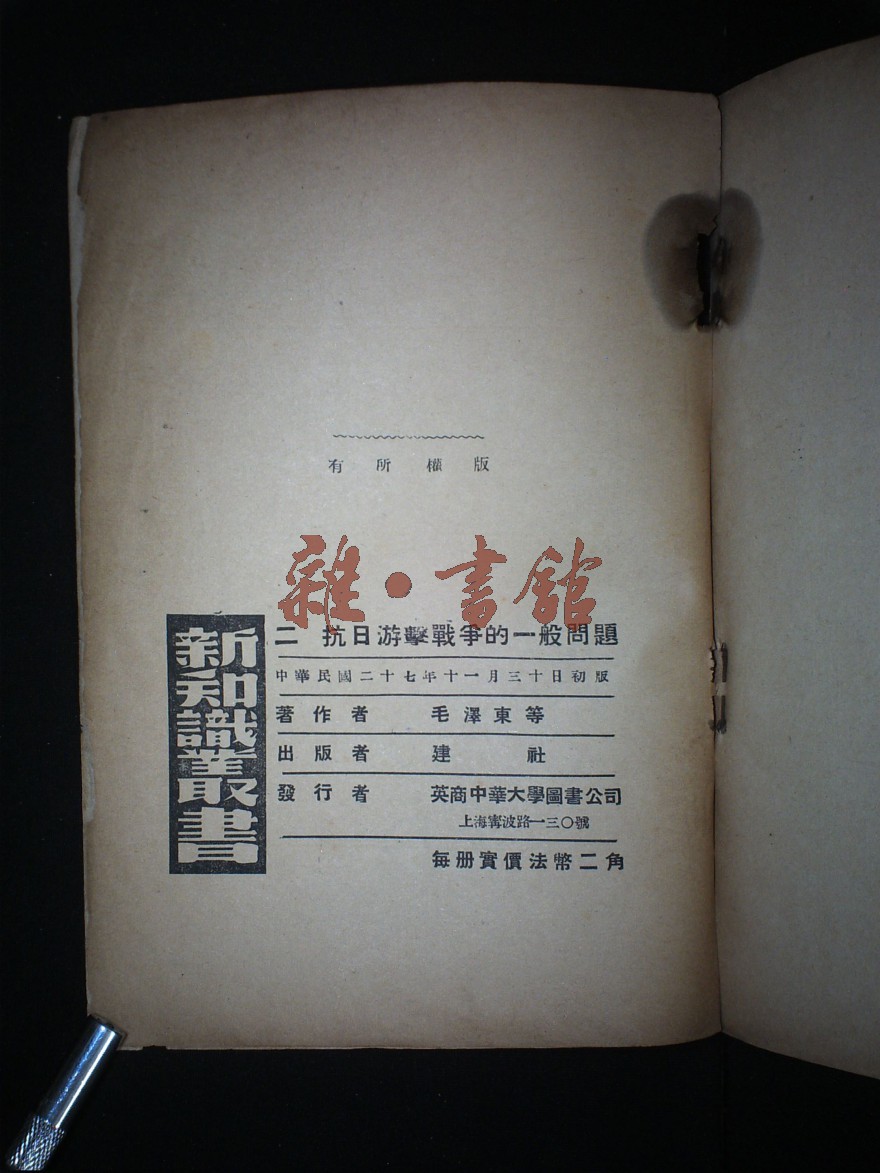 有所權版
雜·書館
新知識叢書
二 抗日游擊戰爭的一般問題
中華民國二十七年十一月三十日初版
著作者 毛澤東等
出版者 建社
發行者 英商中華大學圖書公司
上海寗波路一三〇號
每册實價法幣二角